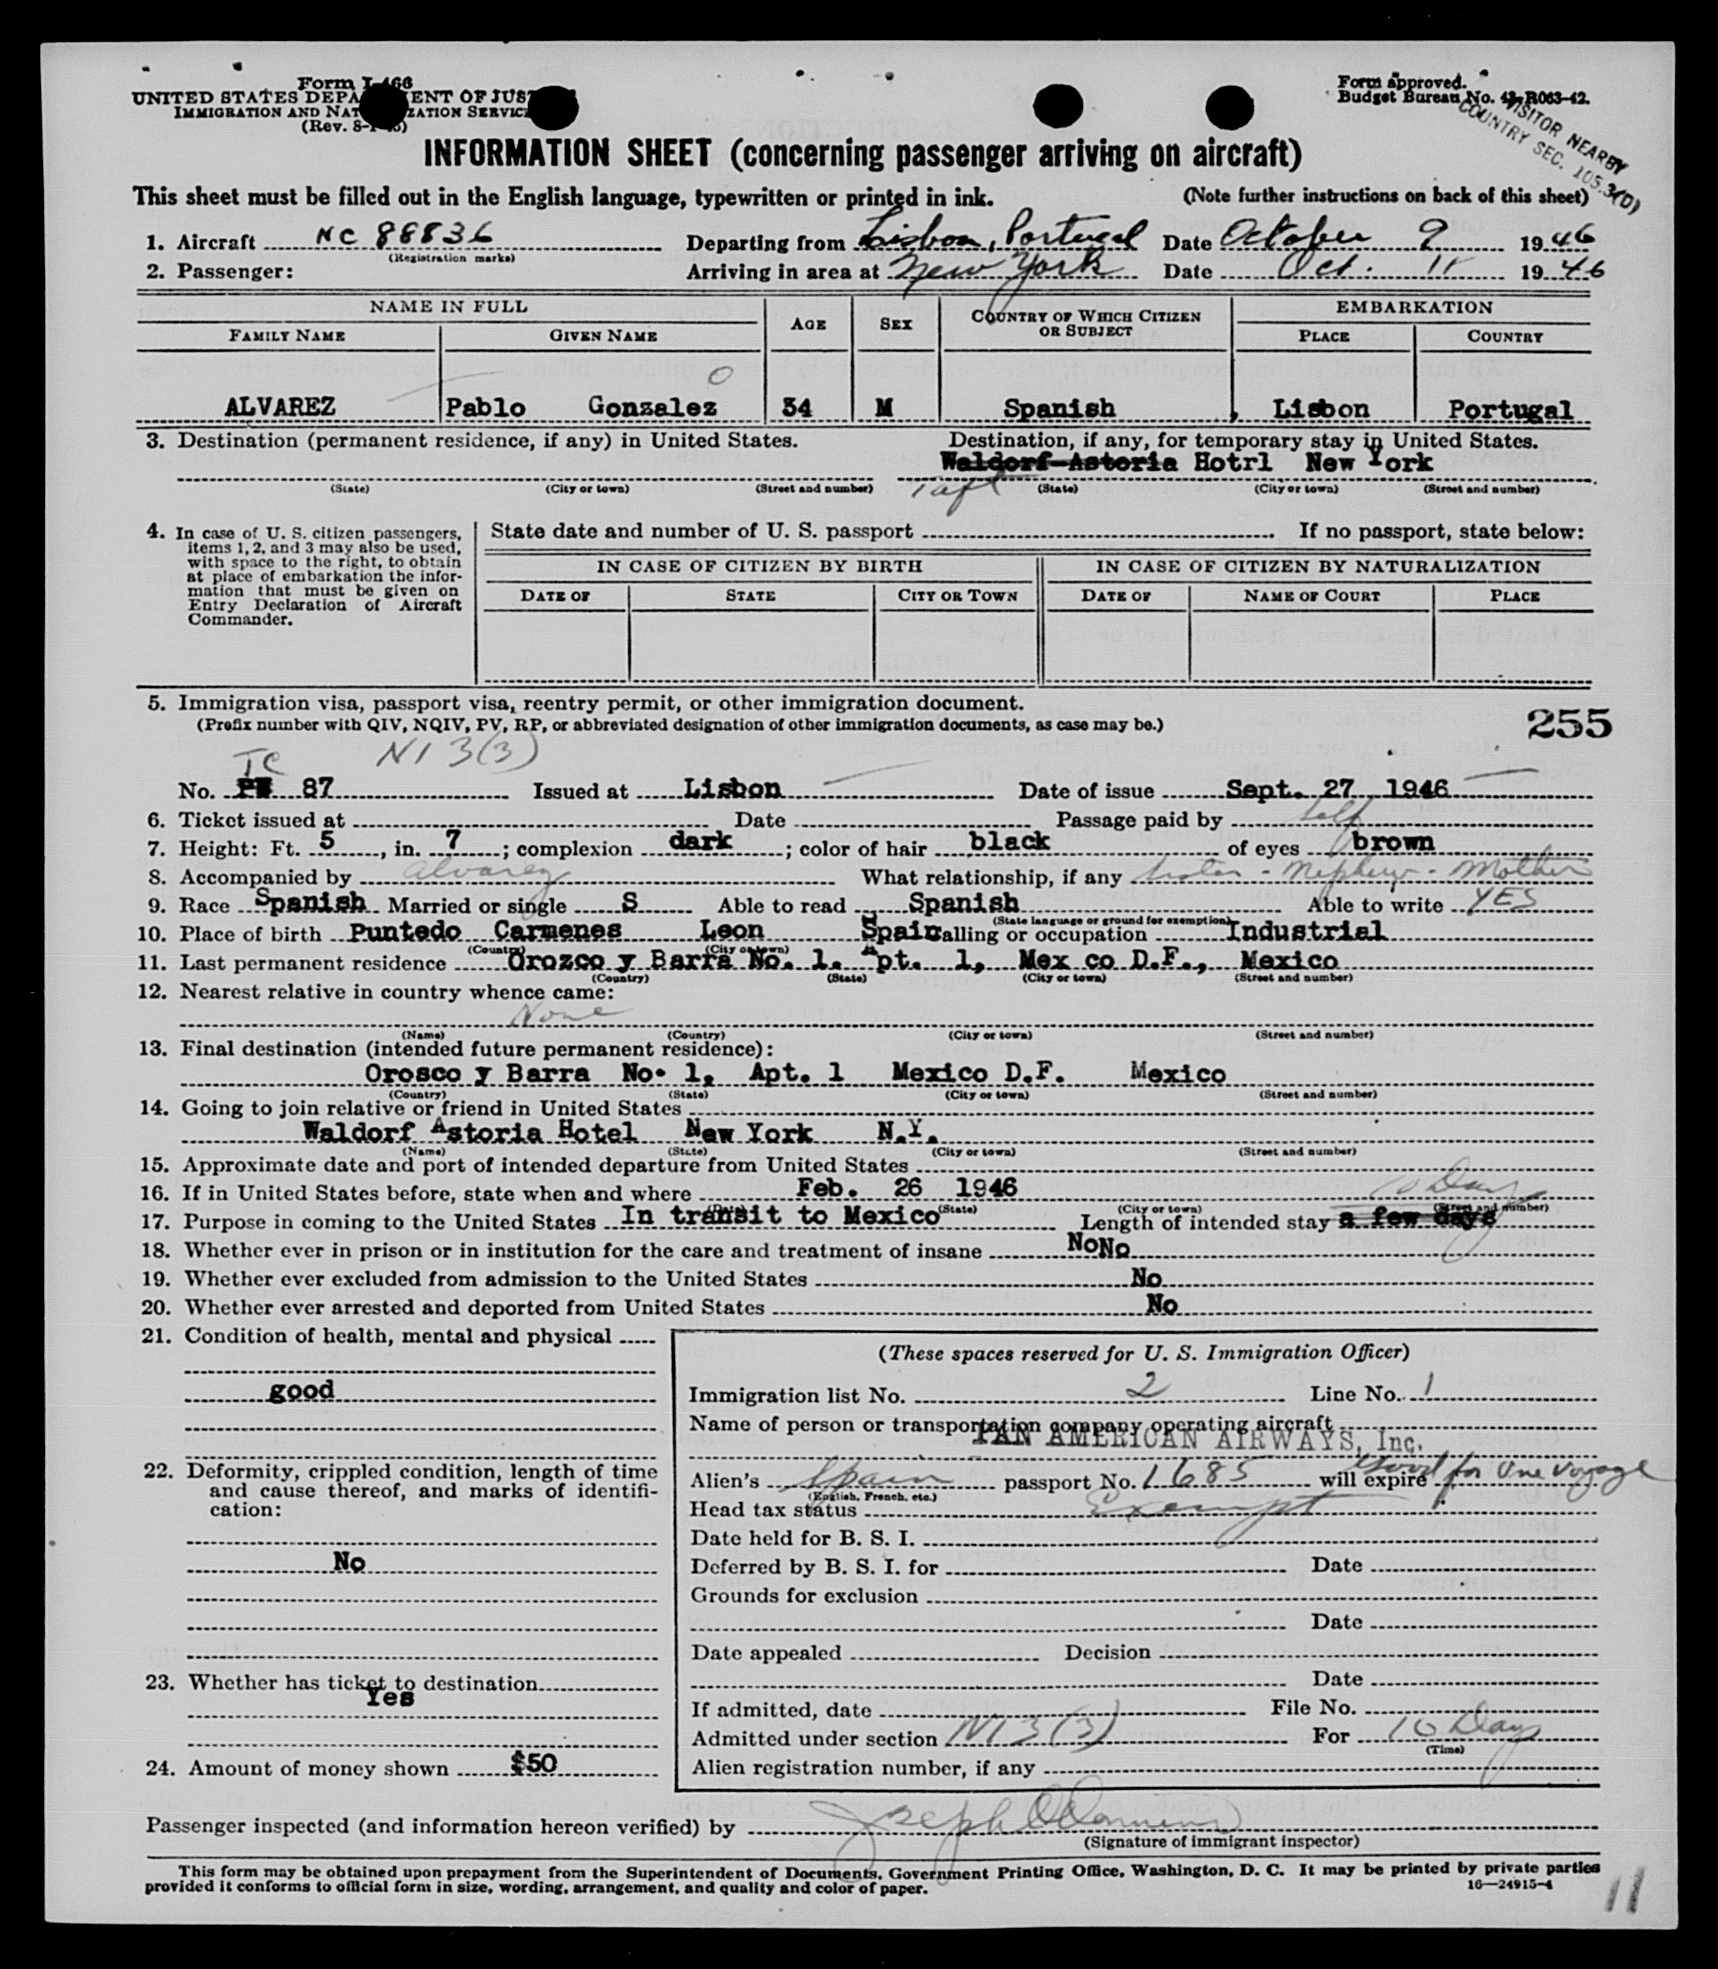 Form I-466
UNITED STATES DEPARTMENT OF JUSTICE
IMMIGRATION AND NATURALIZATION SERVICE
(Rev. 8-1-45)
Form approved.
Budget Bureau No. 43-R063-42.
VISITOR NEARBY
COUNTRY SEC. 105.3(D)
INFORMATION SHEET (concerning passenger arriving on aircraft)
This sheet must be filled out in the English language, typewritten or printed in ink. (Note further instructions on back of this sheet)
1. Aircraft NC 88836 Departing from Lisbon, Portugal Date October 9 1946
(Registration marks)
2. Passenger: Arriving in area at New York Date Oct. 11 1946
NAME IN FULL AGE SEX COUNTRY OF WHICH CITIZEN OR SUBJECT EMBARKATION
FAMILY NAME GIVEN NAME PLACE COUNTRY
O
ALVAREZ Pablo Gonzalez 34 M Spanish , Lisbon Portugal
3. Destination (permanent residence, if any) in United States. Destination, if any, for temporary stay in United States.
Waldorf-Astoria Hotrl New York
(State) (City or town) (Street and number) Taft (State) (City or town) (Street and number)
4. In case of U. S. citizen passengers, items 1, 2, and 3 may also be used, with space to the right, to obtain at place of embarkation the information that must be given on Entry Declaration of Aircraft Commander.
State date and number of U. S. passport If no passport, state below:
IN CASE OF CITIZEN BY BIRTH IN CASE OF CITIZEN BY NATURALIZATION
DATE OF STATE CITY OR TOWN DATE OF NAME OF COURT PLACE
5. Immigration visa, passport visa, reentry permit, or other immigration document.
(Prefix number with QIV, NQIV, PV, RP, or abbreviated designation of other immigration documents, as case may be.)
255
TC NI 3(3)
No. 87 Issued at Lisbon Date of issue Sept. 27 1946
6. Ticket issued at Date Passage paid by Self
7. Height: Ft. 5, in. 7; complexion dark; color of hair black of eyes brown
8. Accompanied by Alvarez What relationship, if any Sister - Nephew - Mother
9. Race Spanish Married or single S Able to read Spanish Able to write YES
(State language or ground for exemption)
10. Place of birth Puntedo Carmenes Leon Spain Calling or occupation Industrial
(Country) (City or town)
11. Last permanent residence Orozco y Barra No. 1. Apt. 1, Mex co D.F., Mexico
(Country) (State) (City or town) (Street and number)
12. Nearest relative in country whence came:
None
(Name) (Country) (City or town) (Street and number)
13. Final destination (intended future permanent residence):
Orosco y Barra No. 1, Apt. 1 Mexico D.F. Mexico
(Country) (State) (City or town) (Street and number)
14. Going to join relative or friend in United States
Waldorf Astoria Hotel New York N.Y.
(Name) (State) (City or town) (Street and number)
15. Approximate date and port of intended departure from United States
16. If in United States before, state when and where Feb. 26 1946
(State) (City or town) (Street and number)
10 Days
17. Purpose in coming to the United States In transit to Mexico Length of intended stay a few days
18. Whether ever in prison or in institution for the care and treatment of insane NoNo
19. Whether ever excluded from admission to the United States No
20. Whether ever arrested and deported from United States No
21. Condition of health, mental and physical
good
22. Deformity, crippled condition, length of time and cause thereof, and marks of identification:
No
23. Whether has ticket to destination
Yes
24. Amount of money shown $50
(These spaces reserved for U. S. Immigration Officer)
Immigration list No. 2 Line No. 1
Name of person or transportation company operating aircraft
PAN AMERICAN AIRWAYS, Inc.
Alien's Spain passport No. 1685 will expire Good for One Voyage
(English, French, etc.)
Head tax status Exempt
Date held for B. S. I.
Deferred by B. S. I. for Date
Grounds for exclusion
Date
Date appealed Decision
Date
If admitted, date File No.
Admitted under section NI 3(3) For 10 Days
(Time)
Alien registration number, if any
Passenger inspected (and information hereon verified) by Joseph
(Signature of immigrant inspector)
This form may be obtained upon prepayment from the Superintendent of Documents, Government Printing Office, Washington, D. C. It may be printed by private parties
provided it conforms to official form in size, wording, arrangement, and quality and color of paper.
16—24915-4
11